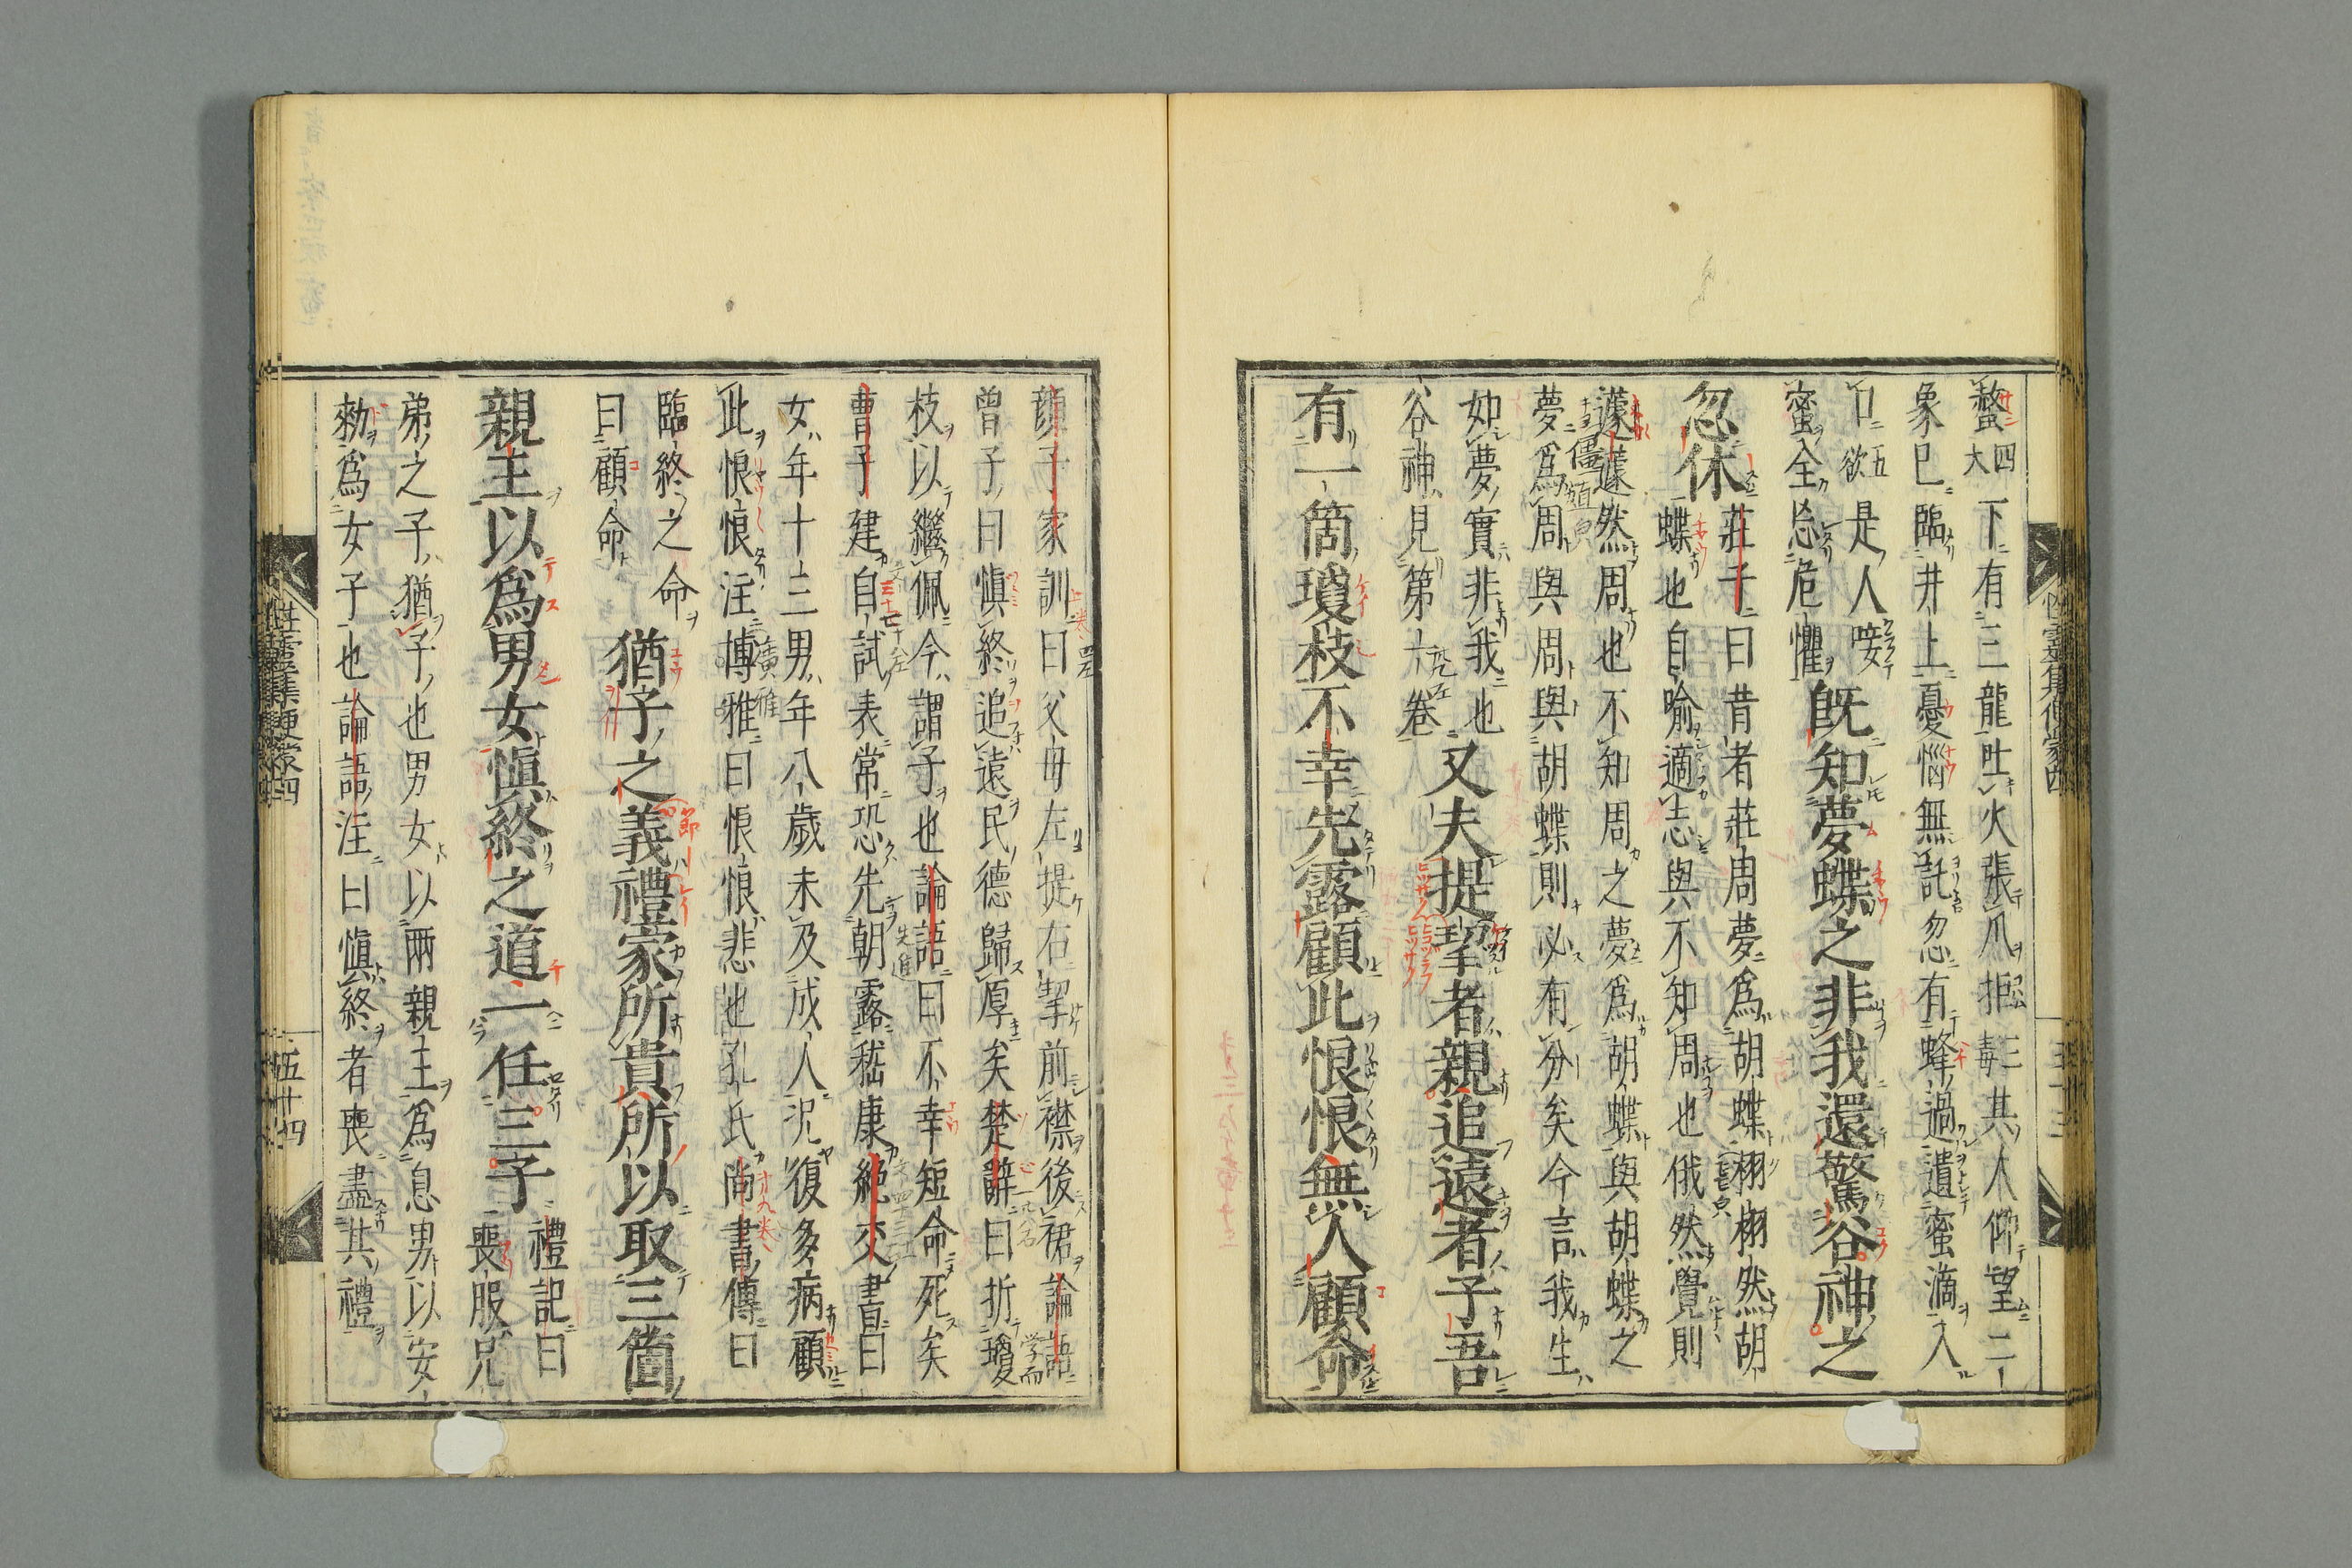 螫四大下有三龍吐火張爪拒三毒其人仰望二
象已臨井上憂惱無託忽有蜂過遺蜜滴入
口五欲是人唼
蜜全忘危懼
既知夢蝶之非我還驚谷神之
忽休
莊子曰昔者莊周夢爲胡蝶栩栩然胡
蝶也自喻適志與不知周也俄然覺則
蘧蘧然周也不知周之夢爲胡蝶與胡蝶之
夢爲周與周與胡蝶則必有分矣今言我生
如夢實非我也
谷神見第十卷
又夫提挈者親追遠者子吾
有一箇瓊枝不幸先露顧此恨恨無人顧命
性靈集便蒙四
顏子家訓曰父母左提右挈前襟後裾論語
曾子曰愼終追遠民德歸厚矣楚辭曰折瓊
枝以繼佩今謂子也論語曰不幸短命死矣
曹子建自試表常恐先朝露嵇康絶交書曰
女年十三男年八歲未及成人況復多病顧
此恨恨注博雅曰恨恨悲也孔氏尚書傳曰
臨終之命
曰顧命
猶子之義禮家所貴所以取三箇
親王以爲男女愼終之道一任三子
禮記曰
喪服兄
弟之子猶子也男女以兩親王爲息男以安
勑爲女子也論語注曰愼終者喪盡其禮
性靈集便蒙四
五十四